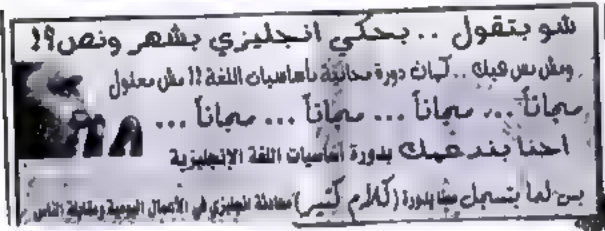 شو بتقول .. بحكي انجليزي بشهر ونص؟!
ومش بس هيك .. كمان دورة مجانية بأساسيات اللغة !! مش معقول
مجاناً ... مجاناً ... مجاناً ... مجاناً ...
احنا بندعيك بدورة أساسيات اللغة الإنجليزية
بس لما بتسجل معنا بدورة (كلام كتير) محادثة انجليزي في الأعمال اليومية ومقابلة الناس